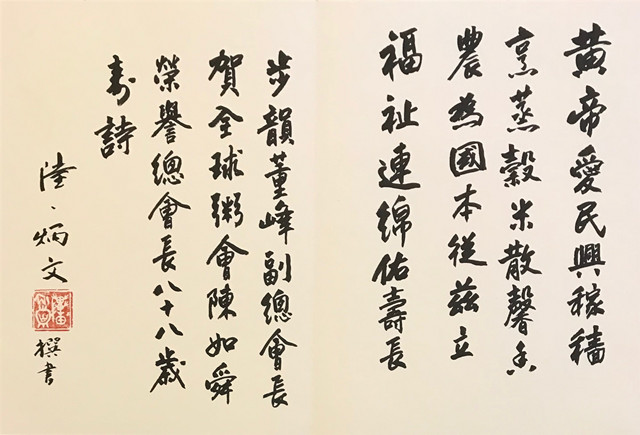 黃帝愛民興稼穡
烹蒸穀米散馨香
農為國本從茲立
福祉連綿佑壽長
步韻董峰副總會長
賀全球粥會陳如舜
榮譽總會長八十八歲
壽詩
陸、炳文
撰書